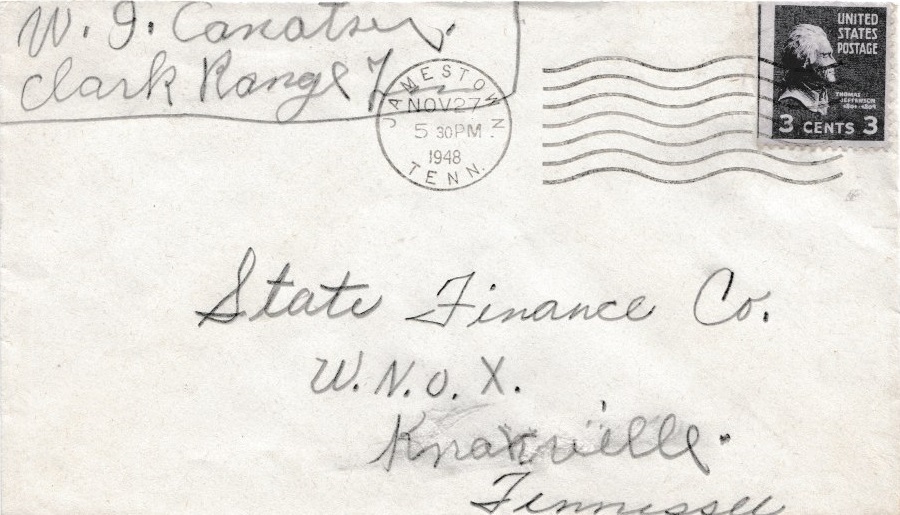 W. I. Canatser.
Clark Range Tenn
JAMESTOWN
NOV 27
5 30 PM
1948
TENN.
UNITED
STATES
POSTAGE
THOMAS
JEFFERSON
1801-1809
3 CENTS 3
State Finance Co.
W.N.O.X.
Knoxville.
Tennessee